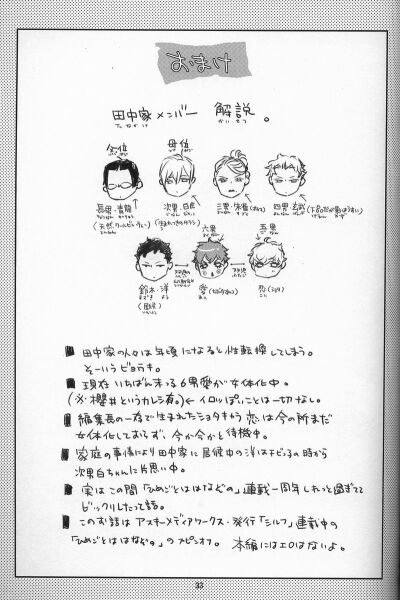 おまけ
田中家メンバー 解説。
たなかけ かいせつ
父位 母位
長男・青龍 次男・白虎 三男・朱雀 四男・玄武
六男 五男
鈴木・洋 愛 恋
(居候)
■ 田中家の人々は年頃になると性転換してしまう。
そーいうビョーキ。
■ 現在いちばん末っ6男愛が女体化中。
(※櫻井というカレシ有。)←イロっぽいことは一切なし。
■ 編集長の一存で生まれたショタキャラ恋は今の所まだ
女体化しておらず、今か今かと待機中。
■ 家庭の事情により田中家に居候中の洋はチビっ子の時から
次男白ちゃんに片思い中。
■ 実はこの間「ひめごとははなぞの」連載一周年しれっと過ぎてて
ビックリしたって話。
■ このお話はアスキーメディアワークス・発行「シルフ」連載中の
「ひめごとははなぞの。」のスピンオフ。 本編にはエロはないよ。
33